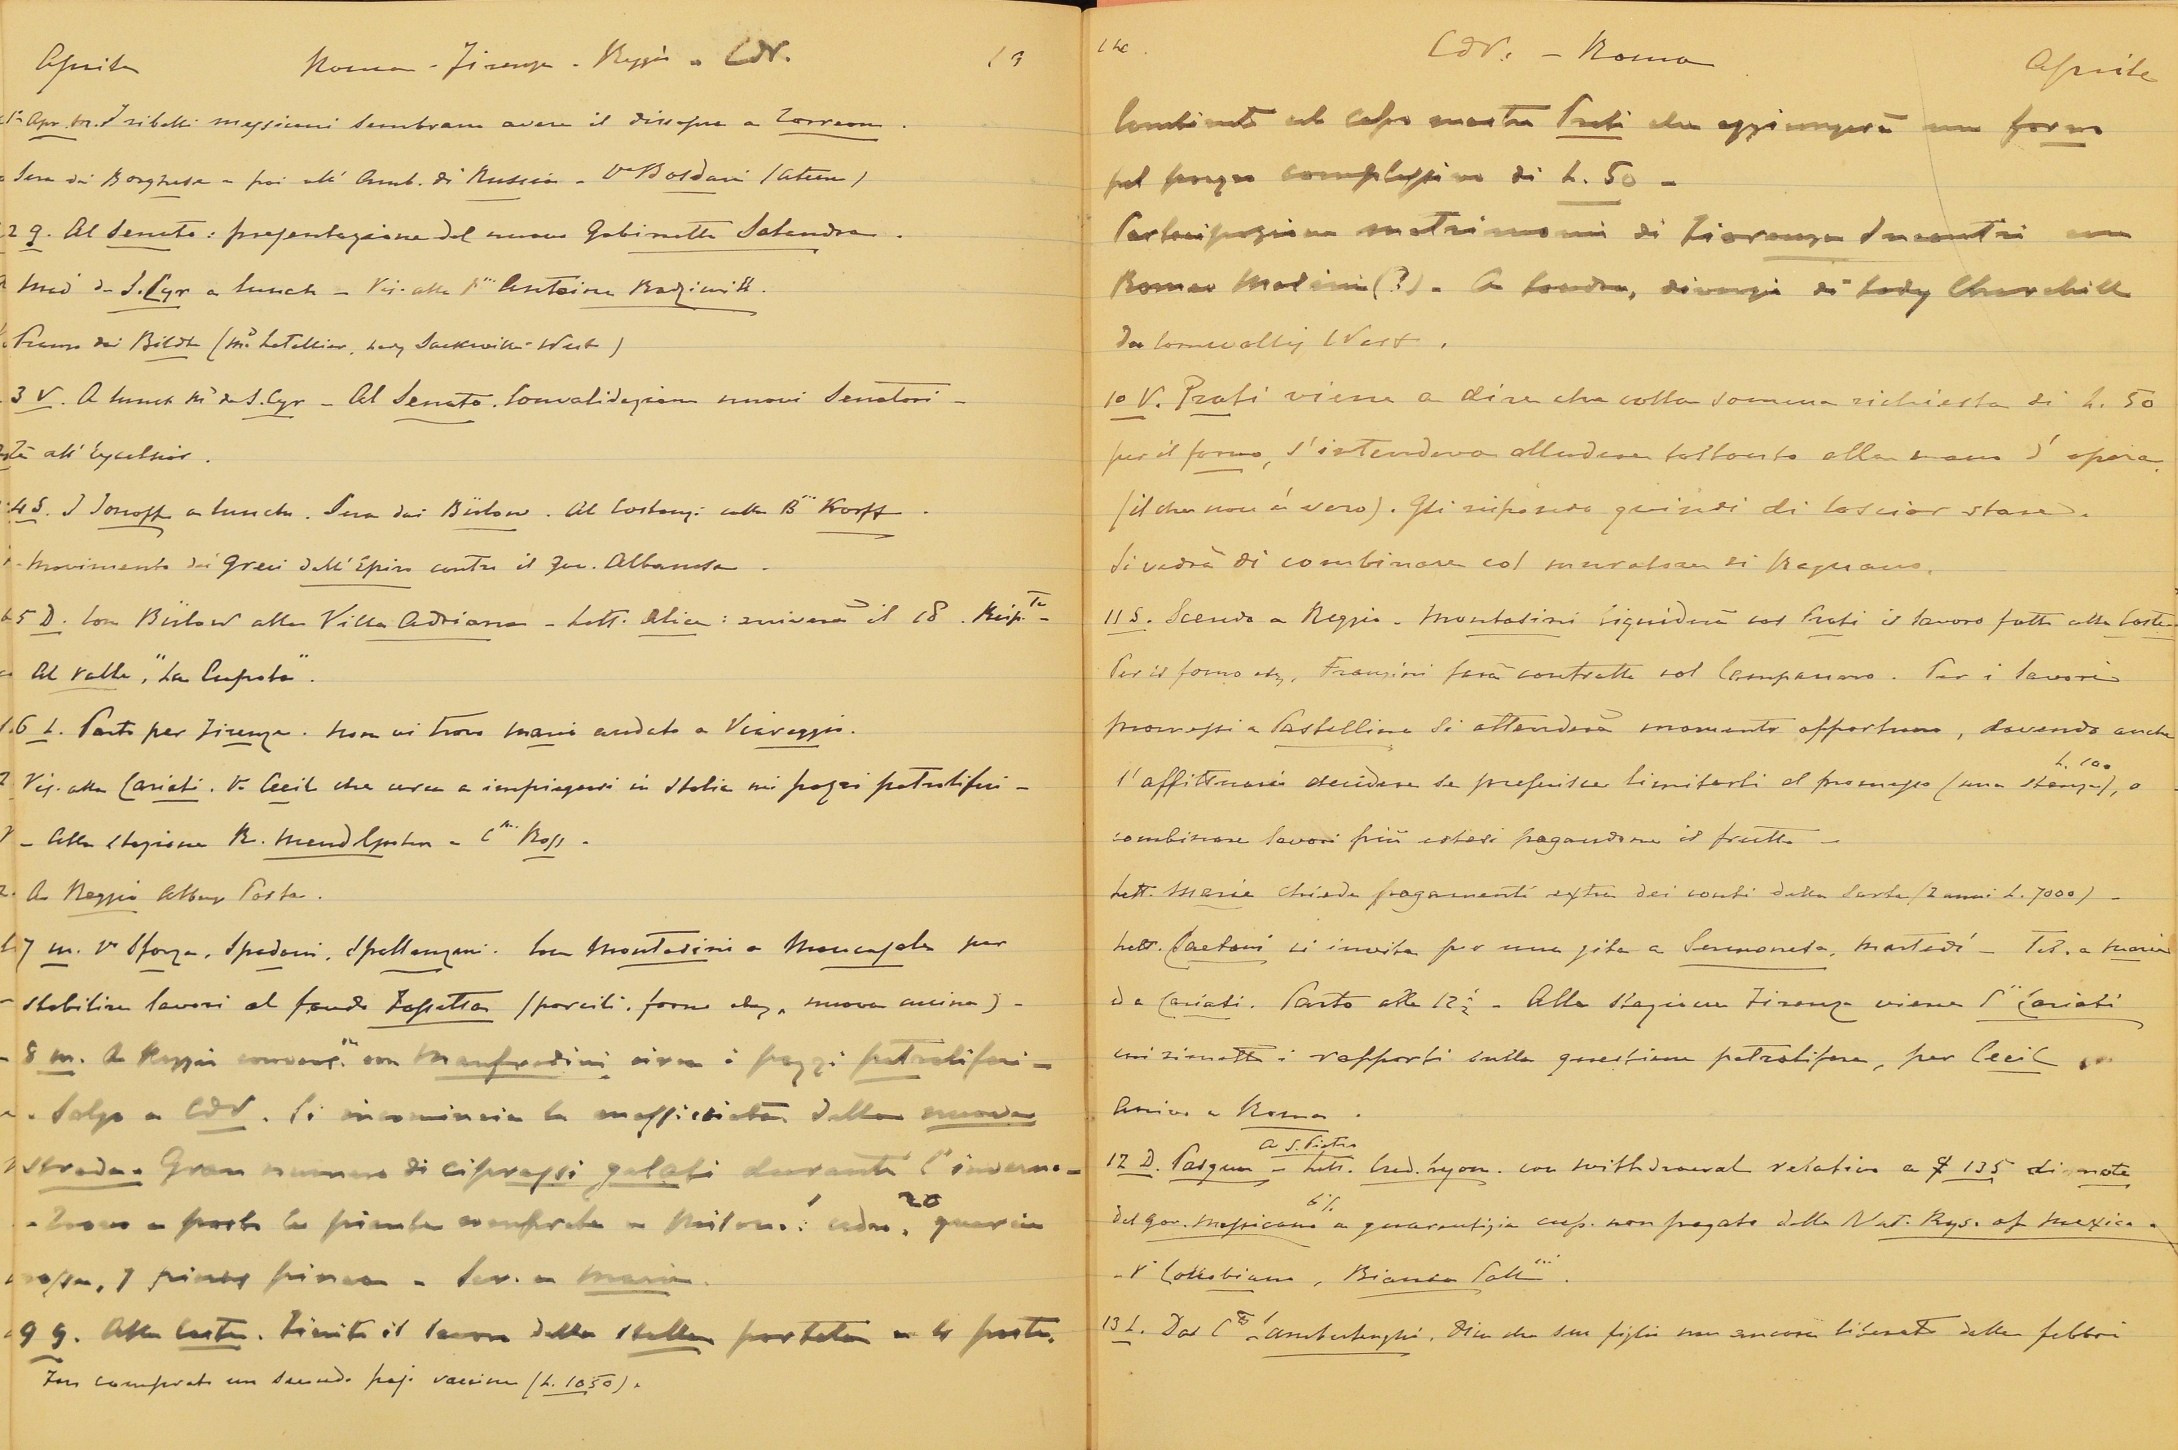 Aprile Roma - Firenze - Reggio - CdV. 13
1° Apr. M. I ribelli messicani sembrano avere il disopra a Torreon.
Sera dai Borghese - poi all' Amb. di Russia - Vo Bosdari (Atene)
2 g. Al Senato: presentazione del nuovo Gabinetto Salandra.
Md de S. Cyr a lunch - Vis. alla Antoine Radziwill.
Pranzo dai Bildt (Md Letellier, Lady Sackville-West)
3 V. A lunch Md de S. Cyr - Al Senato. Convalidazione nuovi Senatori -
all' Excelsior.
4 S. I Jonoff a lunch. Sera dai Bülow. Al Costanzi colla Bssa Korff.
Movimento dei Greci dell' Epiro contro il Albanese.
5 D. Con Bülow alla Villa Adriana - Lett. Alice: arriverà il 18. Risp.
Al Valle, "La Cupola".
6 L. Parto per Firenze. Non vi trovo Mario andato a Viareggio.
Vis. alla Cariati. Vo Cecil che cerca a impiegarsi in Italia nei pozzi petroliferi -
- Alla stazione R. Mendelssohn - Ross.
A Reggio Albergo Posta.
7 M. Vo Sforza, Spadoni, Spallanzani. Con Montasini a Moncasale per
stabilire lavori al fondo Fossetta (porcili, forno ecc, nuova cucina) -
8 M. A Reggio con Manfredini circa i pozzi petroliferi -
Salgo a CdV. Si incomincia la massicciata della nuova
strada - Gran numero di cipressi gelati durante l'inverno -
- Trovo a posto le piante comprate a Milano: cedro, 20 quercie
rossa, 7 pinus pinea - Scr. a Maria.
9 g. Alla Costa. Finito il lavoro della stalla portata a 6 poste.
Fu comprato un secondo pajo vaccine (L. 1050).
14. CdV. - Roma Aprile
Combinato col capo mastro Prati che aggiungerà un forno
pel prezzo complessivo di L. 50 -
Partecipazione matrimonio di Fiorenza Incontri con
Romeo Melini (?). A Londra, divorzio di Lady Churchill
da Cornwallis West.
10 V. Prati viene a dire che colla somma richiesta di L. 50
per il forno, s'intendeva alludere soltanto alla mano d'opera,
(il che non è vero). Gli rispondo quindi di lasciar stare.
Si vedrà di combinare col muratore di Regnano.
11 S. Scendo a Reggio. Montasini liquiderà col Prati il lavoro fatto alla Costa.
Per il forno ecc, Franzini farà contratto col Campanaro. Per i lavori
promessi a Castellina si attenderà momento opportuno, dovendo anche
l'affittuario decidere se preferisce limitarli al promesso (una stanza L. 100), o
combinare lavori più estesi pagandone il frutto -
Lett. Maria chiede pagamenti extra dei conti della Sarta (2 anni L. 7000) -
Lett. Caetani ci invita per una gita a Sermoneta, Martedì - Tel. a Maria
e a Cariati. Parto alle 12½ - Alla stazione Firenze viene Pssa Cariati
mi rimette i rapporti sulla questione petrolifera, per Cecil
Arrivo a Roma.
12 D. Pasqua - A S. Pietro Lett. Cred. Lyon. con withdrawal relativo a $ 135 di note
del gov. messicano 6% a guarantigia cup. non pagato della Nat. Rys. of Mexico -
- Vo Collobiano, Bianca
13 L. Dal Aimberlenghi, dice che suo figlio non ancora liberato dalla febbre